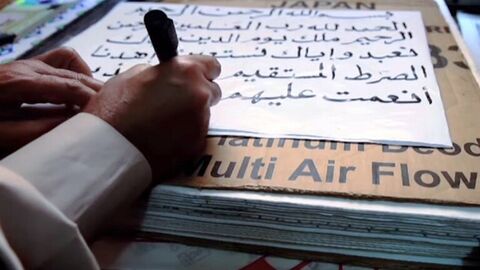 JAPAN
بسم الله الرحمن الرحيم
الحمد لله رب العلمين الرحمن
الرحيم ملك يوم الدين إياك
نعبد وإياك نستعين اهدنا
الصرط المستقيم
أنعمت عليهم
Platinum Deod
Multi Air Flow